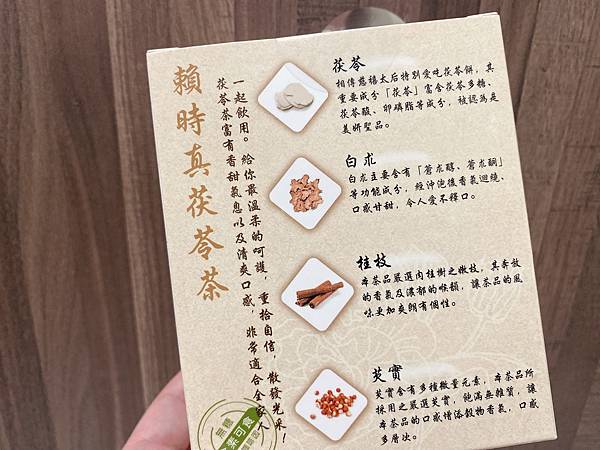 賴時真茯苓茶
茯苓茶富有香甜氣息以及清爽口感，非常適合全家人
一起飲用。給你最溫柔的呵護，重拾自信，散發光采！
茯苓
相傳慈禧太后特別愛吃茯苓餅，其
重要成分「茯苓」富含茯苓多糖、
茯苓酸、卵磷脂等成分，被認為是
美妍聖品。
白朮
白朮主要含有「蒼朮醇、蒼朮酮」
等功能成分，經沖泡後香氣迴繞、
口感甘甜，令人愛不釋口。
桂枝
本茶品嚴選肉桂樹之嫩枝，其奔放
的香氣及濃郁的喉韻，讓茶品的風
味更加爽朗有個性。
芡實
芡實含有多種微量元素，本茶品所
採用之嚴選芡實，飽滿無雜質，讓
本茶品的口感增添穀物香氣，口感
多層次。